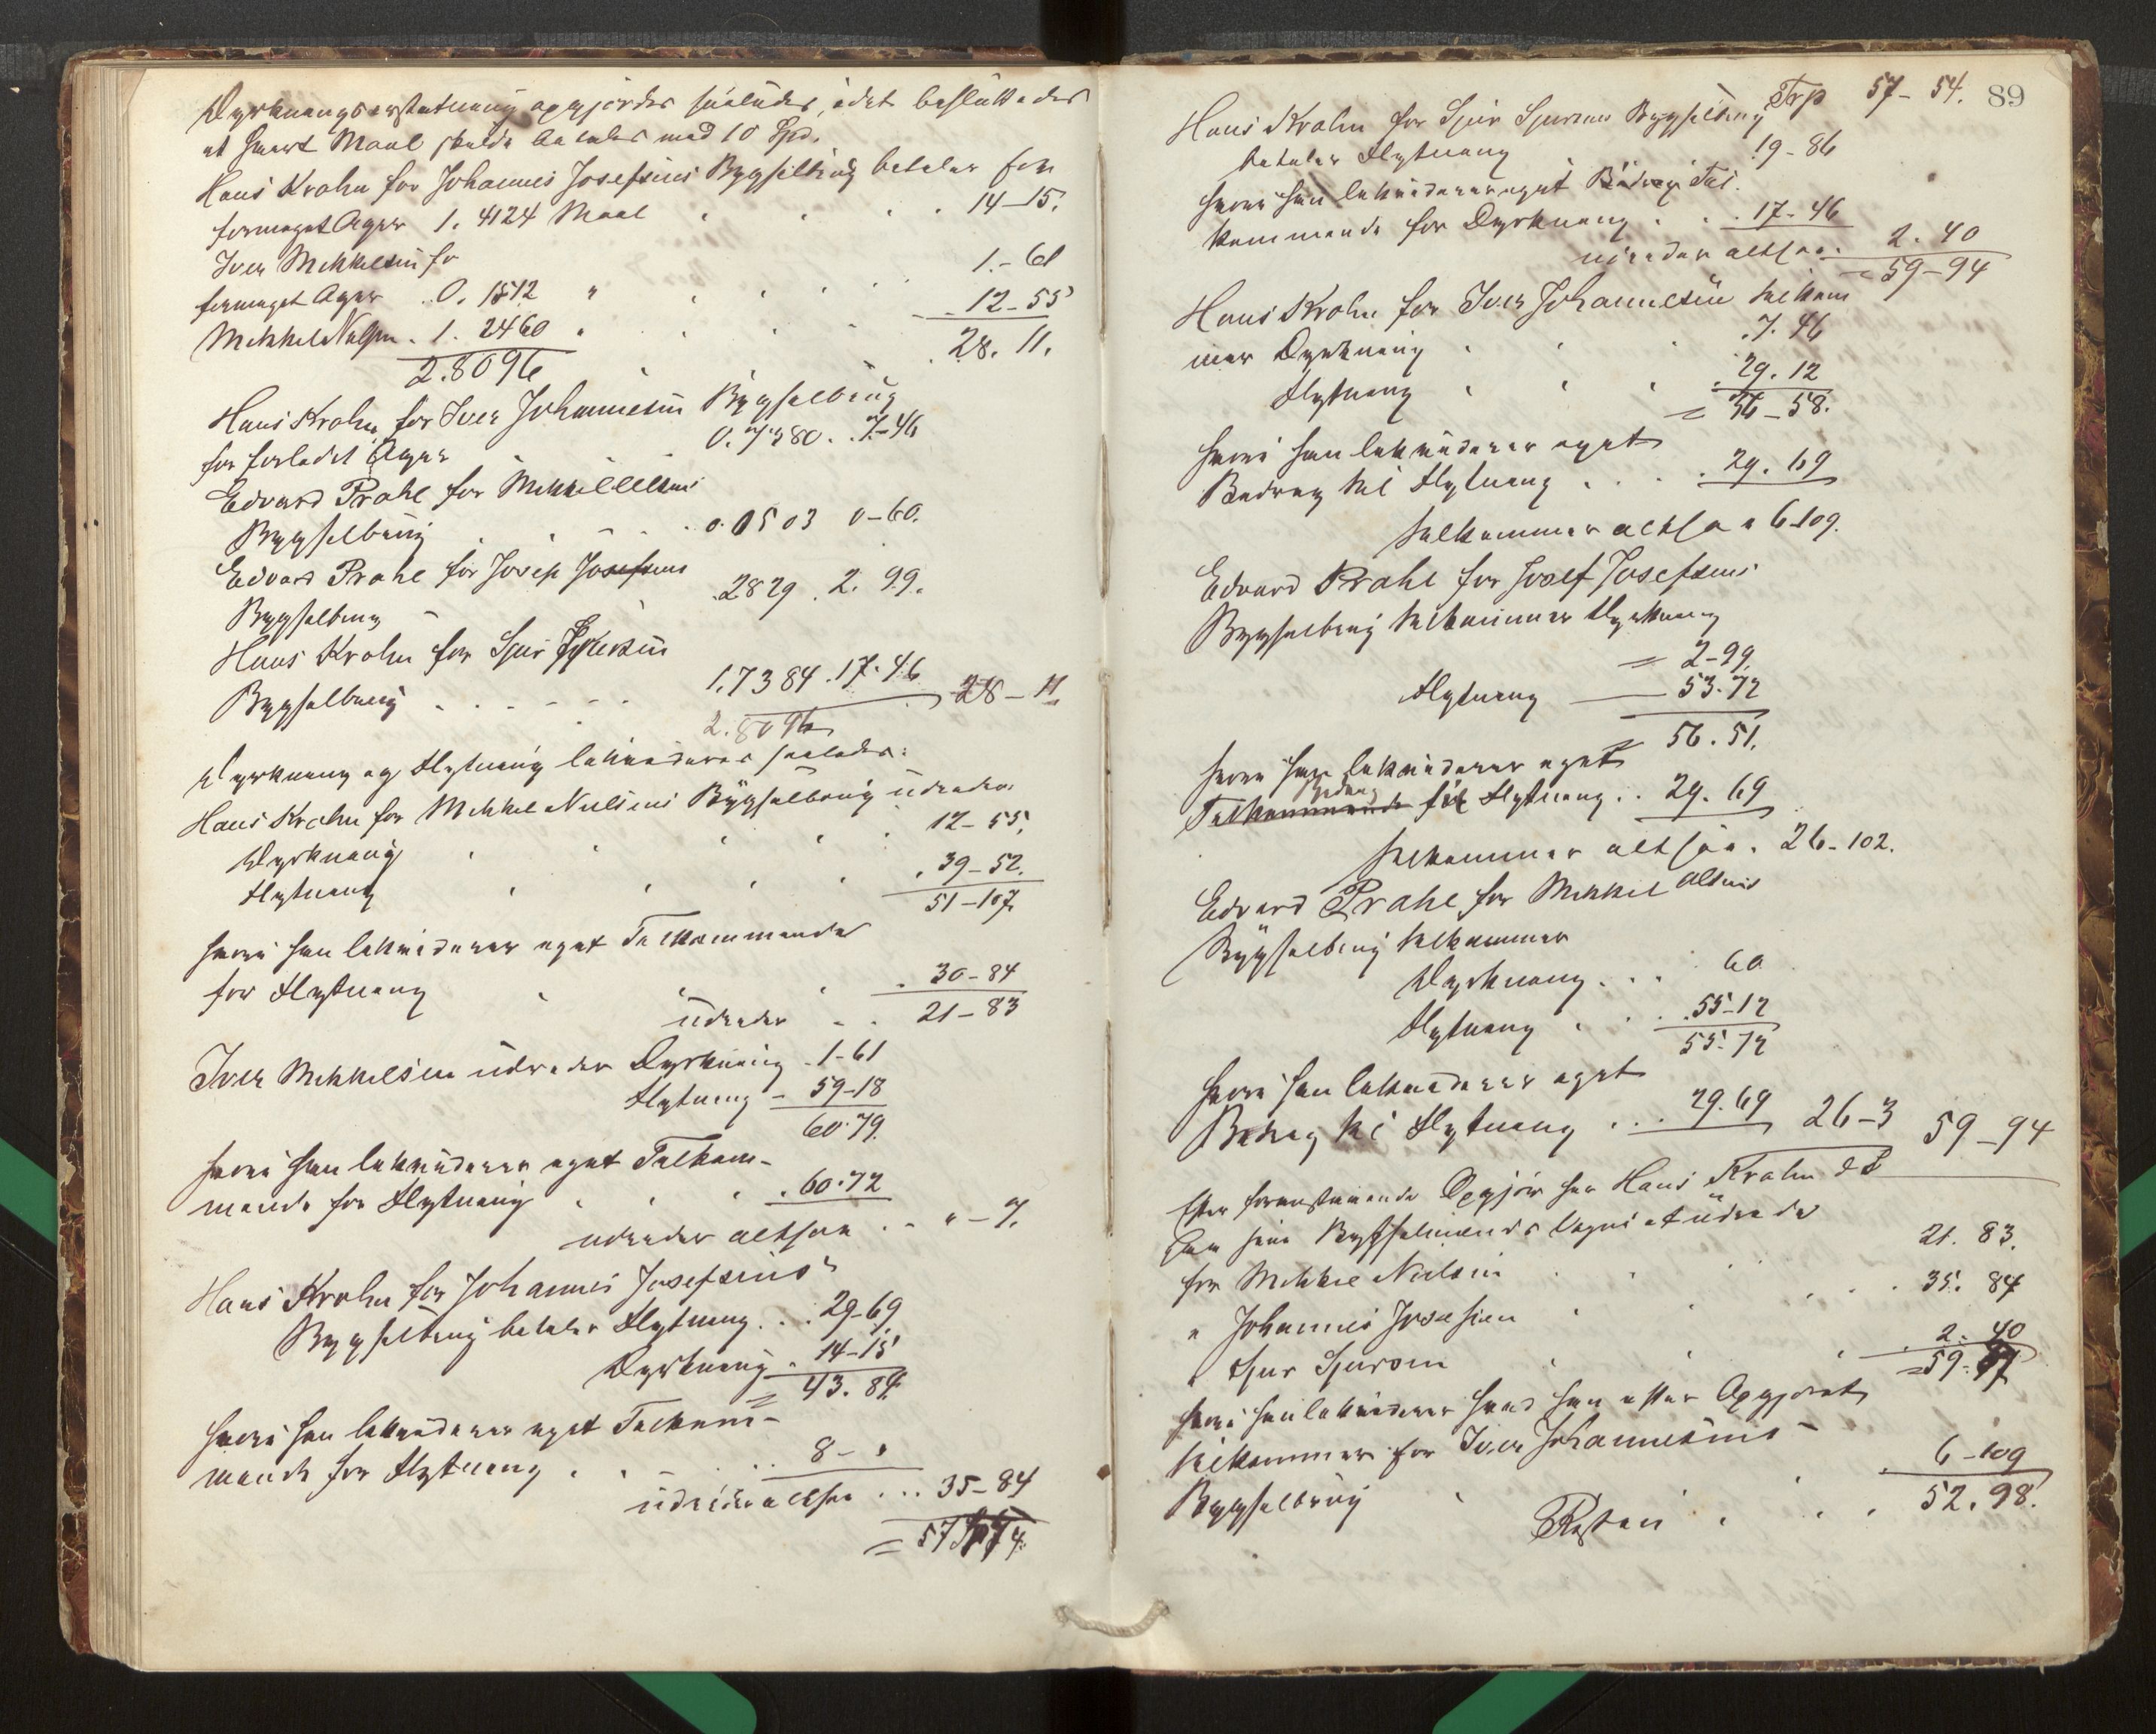 Dyrkningserstatning opgjordes saaledes, idet besluttedes
at hvert Maal skulde betales med 10 Spd.
Hans Krohn for Johannes Josefsens Bygselbrug betaler for
formeget Ager 1. 4124 Maal . . . . 14-15.
Iver Mikkelsen for
formeget Ager . 0. 1512 " . . . . 1.-61
Mikkel Nilsen . 1. 2460 " . . . . 12-55
2.8096 . . 28. 11.
Hans Krohn for Iver Johannesen Bygselbrug
for forladt Ager 0.7380 . . 7-46
Edvard Prahl for Mikkel Olsens
Bygselbrug . . . . 0.0503 0-60.
Edvard Prahl for Josep Josefsens
Bygselbrug .2829 . 2. 99.
Hans Krohn for Sjur Sjursen
Bygselbrug . . . . . . 1.7384 . 17-46 28-11
2.8096
Dyrkning og Flytning likvideres saaledes:
Hans Krohn for Mikkel Nielsens Bygselbrug udreder
Dyrkning . . . . 12-55.
Flytning . . . . . 39-52.
51-107.
hvori han likviderer eget Tilkommende
for Flytning . . . . 30-84
udreder . . 21-83
Iver Mikkelsen udreder Dyrkning . 1-61
Flytning - 59-18
60-79.
hvori han likviderer eget Tilkom-
mende for Flytning . . . . 60.72
udreder altsaa . . " - 7.
Hans Krohn for Johannes Josefsens
Bygselbrug betaler Flytning . . . 29-69
Dyrkning . 14-15
= 43. 84.
hvori han likviderer eget Tilkom-
mende for Flytning . . . . 8- "
udreder altsaa . . . 35-84
= 57
89
Trp 57-54.
Hans Krohn for Sjur Sjursens Bygselbrug
betaler Flytning 19-86
hvori han likviderer eget Bidrag Til-
kommende for Dyrkning . . . 17-46
udreder altsaa . 2. 40
= 59-94
Hans Krohn for Iver Johannesen tilkom
mer Dyrkning . . . 7. 46
Flytning . . . . 29. 12
= 36-58.
hvori han likviderer eget
Bidrag til Flytning . . . . 29. 69
tilkommer altsaa 6-109.
Edvard Prahl for Josef Josefsens
Bygselbrug tilkommer Dyrkning
= 2-99.
Flytning — 53.72
= 56. 51.
hvori han likviderer eget
Tilkommende Bidrag til Flytning . . 29. 69
tilkommer altsaa . 26-102.
Edvard Prahl for Mikkel Olsens
Bygselbrug tilkommer
Dyrkning . . . 60
Flytning . . . 55-12
55.72
hvori han likviderer eget
Bidrag til Flytning . . . 29.69 26-3 59-94
Efter foranstaaende Opgjør har Hans Krohn
paa sine Bygselmænds Vegne at udrede
for Mikkel Nielsen . . . 21. 83.
" Johannes Josefsen . . . . . 35. 84
" Sjur Sjursen . . . . 2. 40
= 59.
hvori han likviderer hvad han efter Opgjøret
tilkommer for Iver Johannesens
Bygselbrug . . . 6-109
Resten . . . 52. 98.